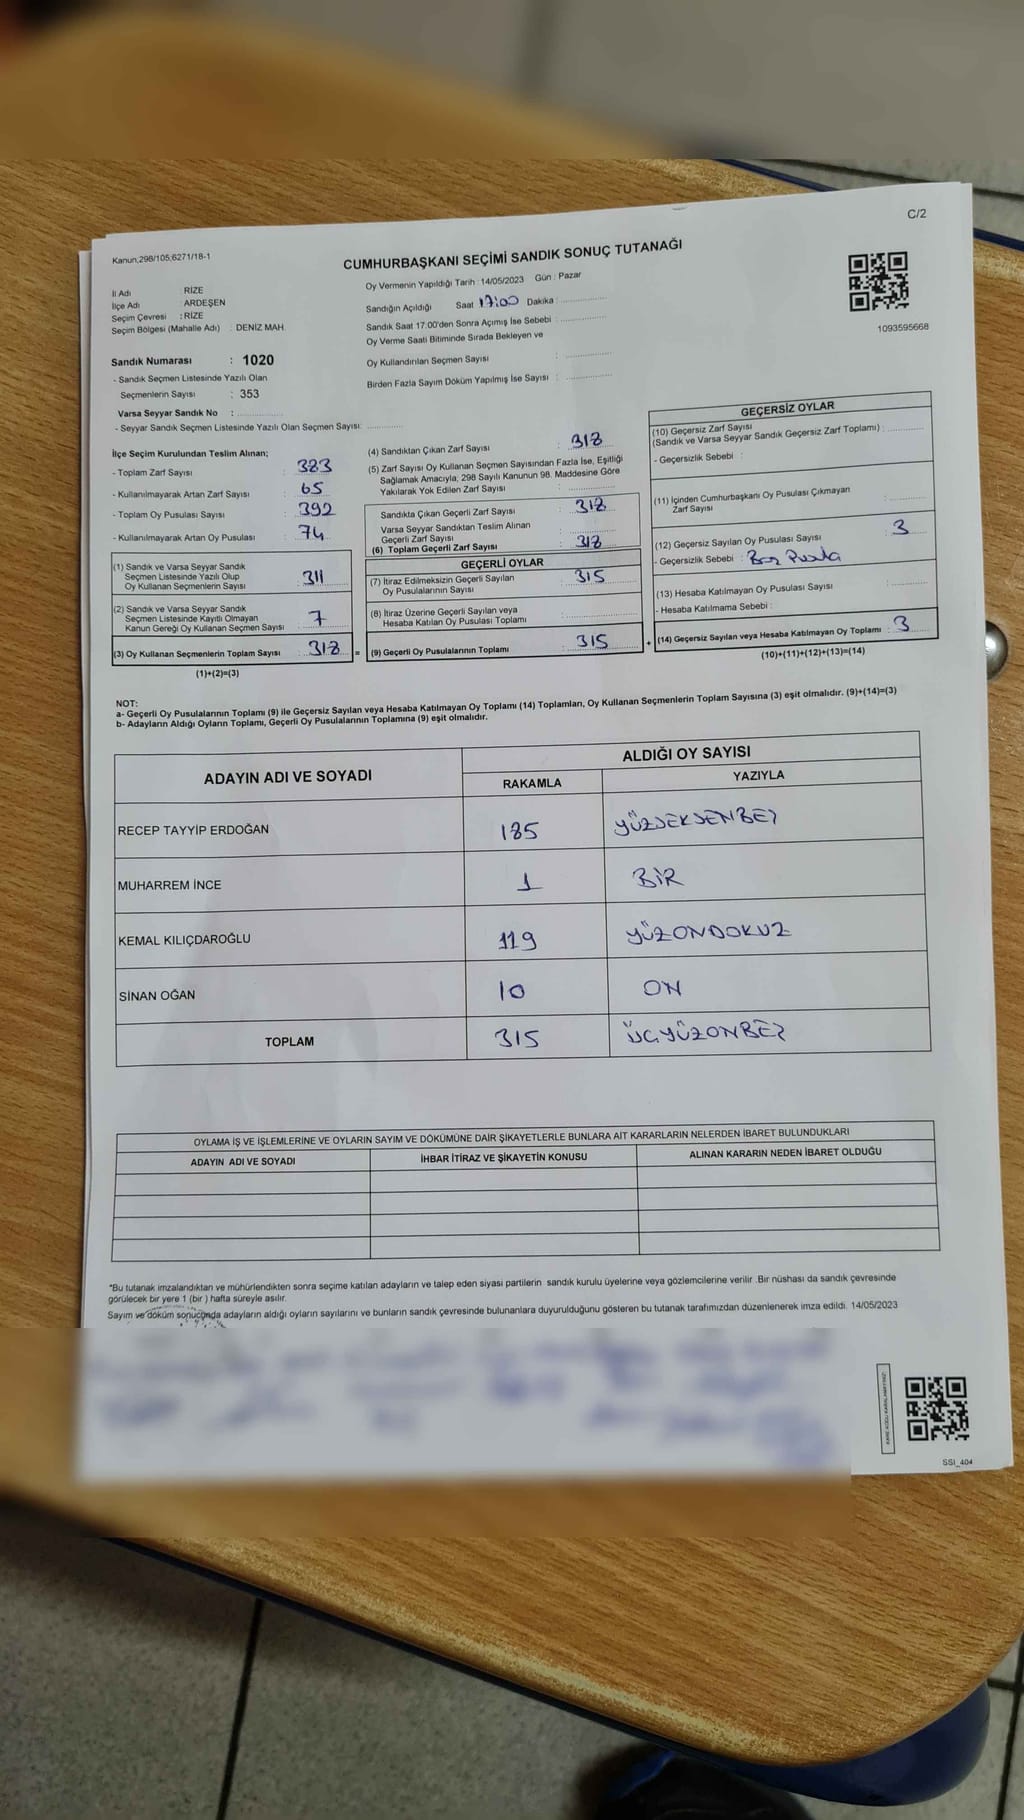 C/2
Kanun,298/105;6271/18-1
CUMHURBAŞKANI SEÇİMİ SANDIK SONUÇ TUTANAĞI
İl Adı : RİZE
İlçe Adı : ARDEŞEN
Seçim Çevresi : RİZE
Seçim Bölgesi (Mahalle Adı) : DENİZ MAH
Sandık Numarası : 1020
- Sandık Seçmen Listesinde Yazılı Olan
Seçmenlerin Sayısı : 353
Varsa Seyyar Sandık No :
- Seyyar Sandık Seçmen Listesinde Yazılı Olan Seçmen Sayısı:
Oy Vermenin Yapıldığı Tarih : 14/05/2023 Gün : Pazar
Sandığın Açıldığı Saat 17:00 Dakika :
Sandık Saat 17:00'den Sonra Açımış İse Sebebi :
Oy Verme Saati Bitiminde Sırada Bekleyen ve
Oy Kullandırılan Seçmen Sayısı :
Birden Fazla Sayım Döküm Yapılmış İse Sayısı :
1093595668
İlçe Seçim Kurulundan Teslim Alınan;
- Toplam Zarf Sayısı : 383
- Kullanılmayarak Artan Zarf Sayısı : 65
- Toplam Oy Pusulası Sayısı : 392
- Kullanılmayarak Artan Oy Pusulası : 74
(1) Sandık ve Varsa Seyyar Sandık
Seçmen Listesinde Yazılı Olup
Oy Kullanan Seçmenlerin Sayısı : 311
(2) Sandık ve Varsa Seyyar Sandık
Seçmen Listesinde Kayıtlı Olmayan
Kanun Gereği Oy Kullanan Seçmen Sayısı : 7
(3) Oy Kullanan Seçmenlerin Toplam Sayısı : 318 =
(1)+(2)=(3)
(4) Sandıktan Çıkan Zarf Sayısı : 318
(5) Zarf Sayısı Oy Kullanan Seçmen Sayısından Fazla İse, Eşitliği
Sağlamak Amacıyla; 298 Sayılı Kanunun 98. Maddesine Göre
Yakılarak Yok Edilen Zarf Sayısı :
Sandıkta Çıkan Geçerli Zarf Sayısı : 318
Varsa Seyyar Sandıktan Teslim Alınan
Geçerli Zarf Sayısı :
(6) Toplam Geçerli Zarf Sayısı : 318
GEÇERLİ OYLAR
(7) İtiraz Edilmeksizin Geçerli Sayılan
Oy Pusulalarının Sayısı : 315
(8) İtiraz Üzerine Geçerli Sayılan veya
Hesaba Katılan Oy Pusulası Toplamı :
(9) Geçerli Oy Pusulalarının Toplamı : 315 +
GEÇERSİZ OYLAR
(10) Geçersiz Zarf Sayısı
(Sandık ve Varsa Seyyar Sandık Geçersiz Zarf Toplamı) :
- Geçersizlik Sebebi :
(11) İçinden Cumhurbaşkanı Oy Pusulası Çıkmayan
Zarf Sayısı :
(12) Geçersiz Sayılan Oy Pusulası Sayısı : 3
- Geçersizlik Sebebi : Boş Pusula
(13) Hesaba Katılmayan Oy Pusulası Sayısı :
- Hesaba Katılmama Sebebi :
(14) Geçersiz Sayılan veya Hesaba Katılmayan Oy Toplamı : 3
(10)+(11)+(12)+(13)=(14)
NOT:
a- Geçerli Oy Pusulalarının Toplamı (9) ile Geçersiz Sayılan veya Hesaba Katılmayan Oy Toplamı (14) Toplamları, Oy Kullanan Seçmenlerin Toplam Sayısına (3) eşit olmalıdır. (9)+(14)=(3)
b- Adayların Aldığı Oyların Toplamı, Geçerli Oy Pusulalarının Toplamına (9) eşit olmalıdır.
ADAYIN ADI VE SOYADI ALDIĞI OY SAYISI
RAKAMLA YAZIYLA
RECEP TAYYİP ERDOĞAN 185 YÜZSEKSENBEŞ
MUHARREM İNCE 1 BİR
KEMAL KILIÇDAROĞLU 119 YÜZONDOKUZ
SİNAN OĞAN 10 ON
TOPLAM 315 ÜÇYÜZONBEŞ
OYLAMA İŞ VE İŞLEMLERİNE VE OYLARIN SAYIM VE DÖKÜMÜNE DAİR ŞİKAYETLERLE BUNLARA AİT KARARLARIN NELERDEN İBARET BULUNDUKLARI
ADAYIN ADI VE SOYADI İHBAR İTİRAZ VE ŞİKAYETİN KONUSU ALINAN KARARIN NEDEN İBARET OLDUĞU
*Bu tutanak imzalandıktan ve mühürlendikten sonra seçime katılan adayların ve talep eden siyasi partilerin sandık kurulu üyelerine veya gözlemcilerine verilir .Bir nüshası da sandık çevresinde
görülecek bir yere 1 (bir ) hafta süreyle asılır.
Sayım ve döküm sonucunda adayların aldığı oyların sayılarını ve bunların sandık çevresinde bulunanlara duyurulduğunu gösteren bu tutanak tarafımızdan düzenlenerek imza edildi. 14/05/2023
KARE KODU KARALAMAYINIZ
SSI_404